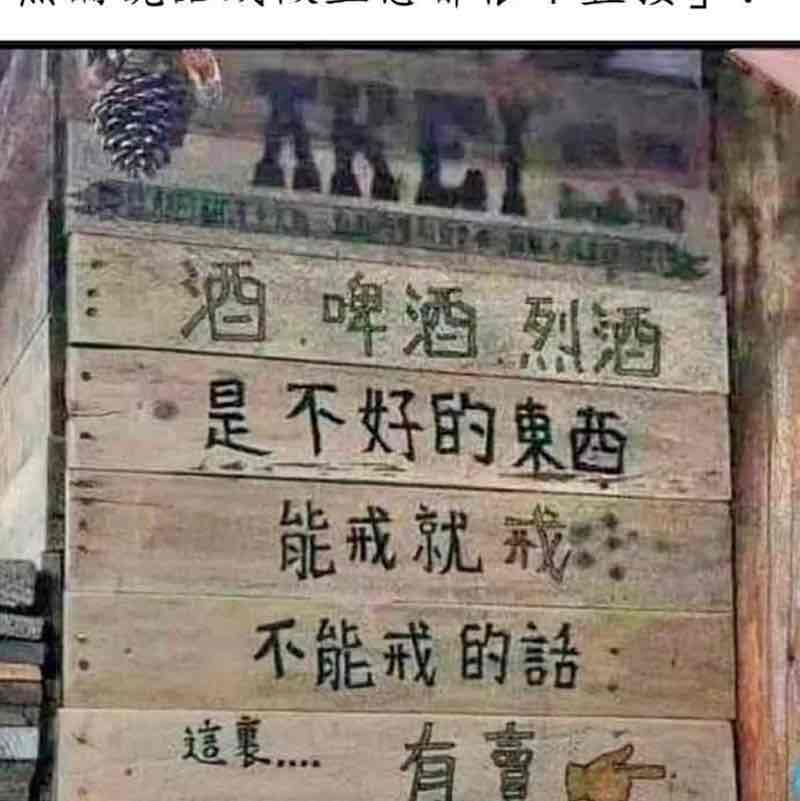 酒 啤酒 烈酒
是不好的東西
能戒就戒
不能戒的話
這裏.... 有賣